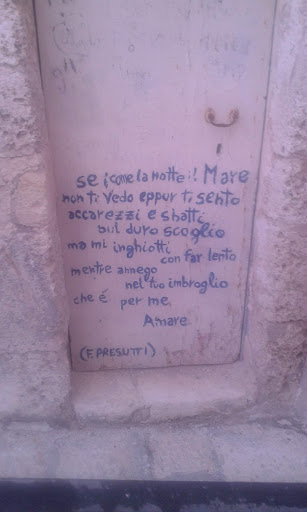 se i come la notte il Mare
non ti vedo eppur ti sento
accarezzi e sbatti
sul duro scoglio
ma mi inghiotti
con far lento
mentre annego
nel tuo imbroglio
che é per me,
Amare
(F. PRESUTTI)